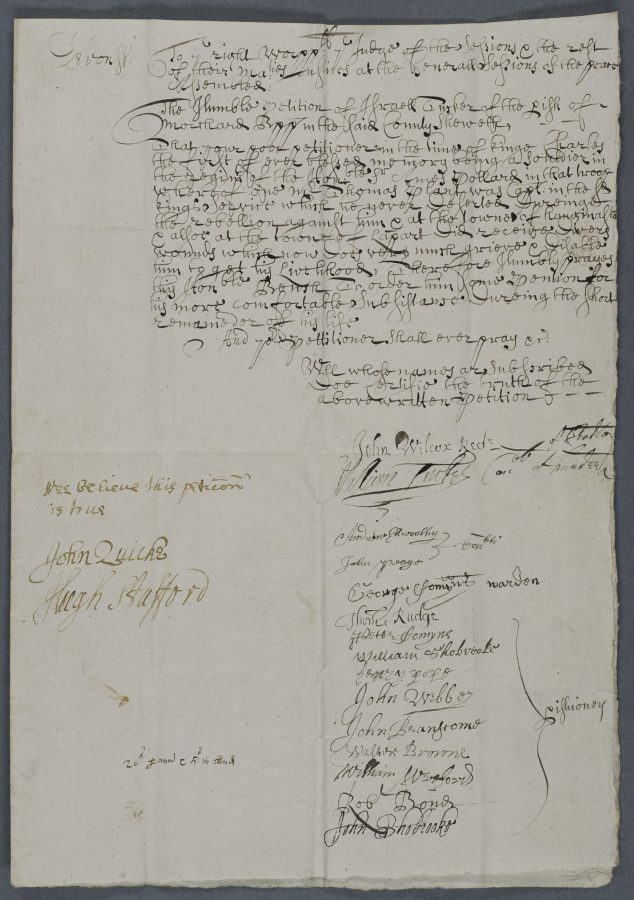 Devonss:
To ye right Worpp:ll ye Judge of the Sesions & the rest
of their Maties Justices at the Generall Sesions of the peace
Assembled:
The Humble Petition of Israell Tucker of the pish of
Morchard Bpp in the said County Sheweth
That your poor petitioner in the time of Kinge Charles
the first of ever blessed memory being a Souldier in
the regimt of the Honble Sr Pollard in that troop
whereof one mr Thomas Plant was Capt: in the sd
Kings Service which he never deserted dureinge
the rebellion against him & at the towne of
& allsoe at the towne of did receive divers
wounds which now doe very much grieve & disable
him to get his livelihood Therefore humbly prayes
this honble Bench To order him some Pention for
his more comfortable Subsistance dureing the short
remainder of his life
And yor Pettitioner shall ever pray &c:
Wee whose names are Subscribed
doe Certifie the truth of the
above written Petition
John Wilcox Rectr
William
Wee believe this peticon
is true
John Quicke
Hugh Stafford
Andrew
John
George warden
Thom: Rudge
Peter Comyns
William Shobrooke
pope
John Webber
John Branscome
Walter Browne
William Wreford
Rob: Bond
John Shobrooke
pishioners